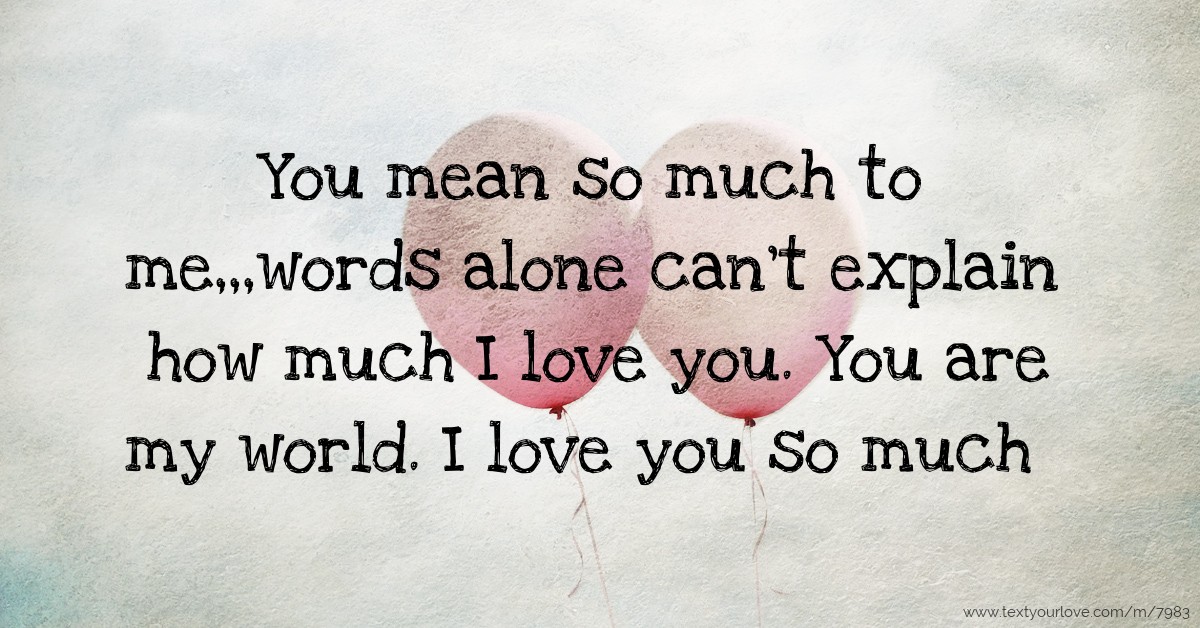 You mean so much to
me,,,words alone can't explain
how much I love you. You are
my world. I love you so much
www.textyourlove.com/m/7983